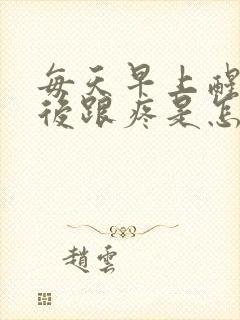 每天早上醒
後跟疼是怎
趙雲